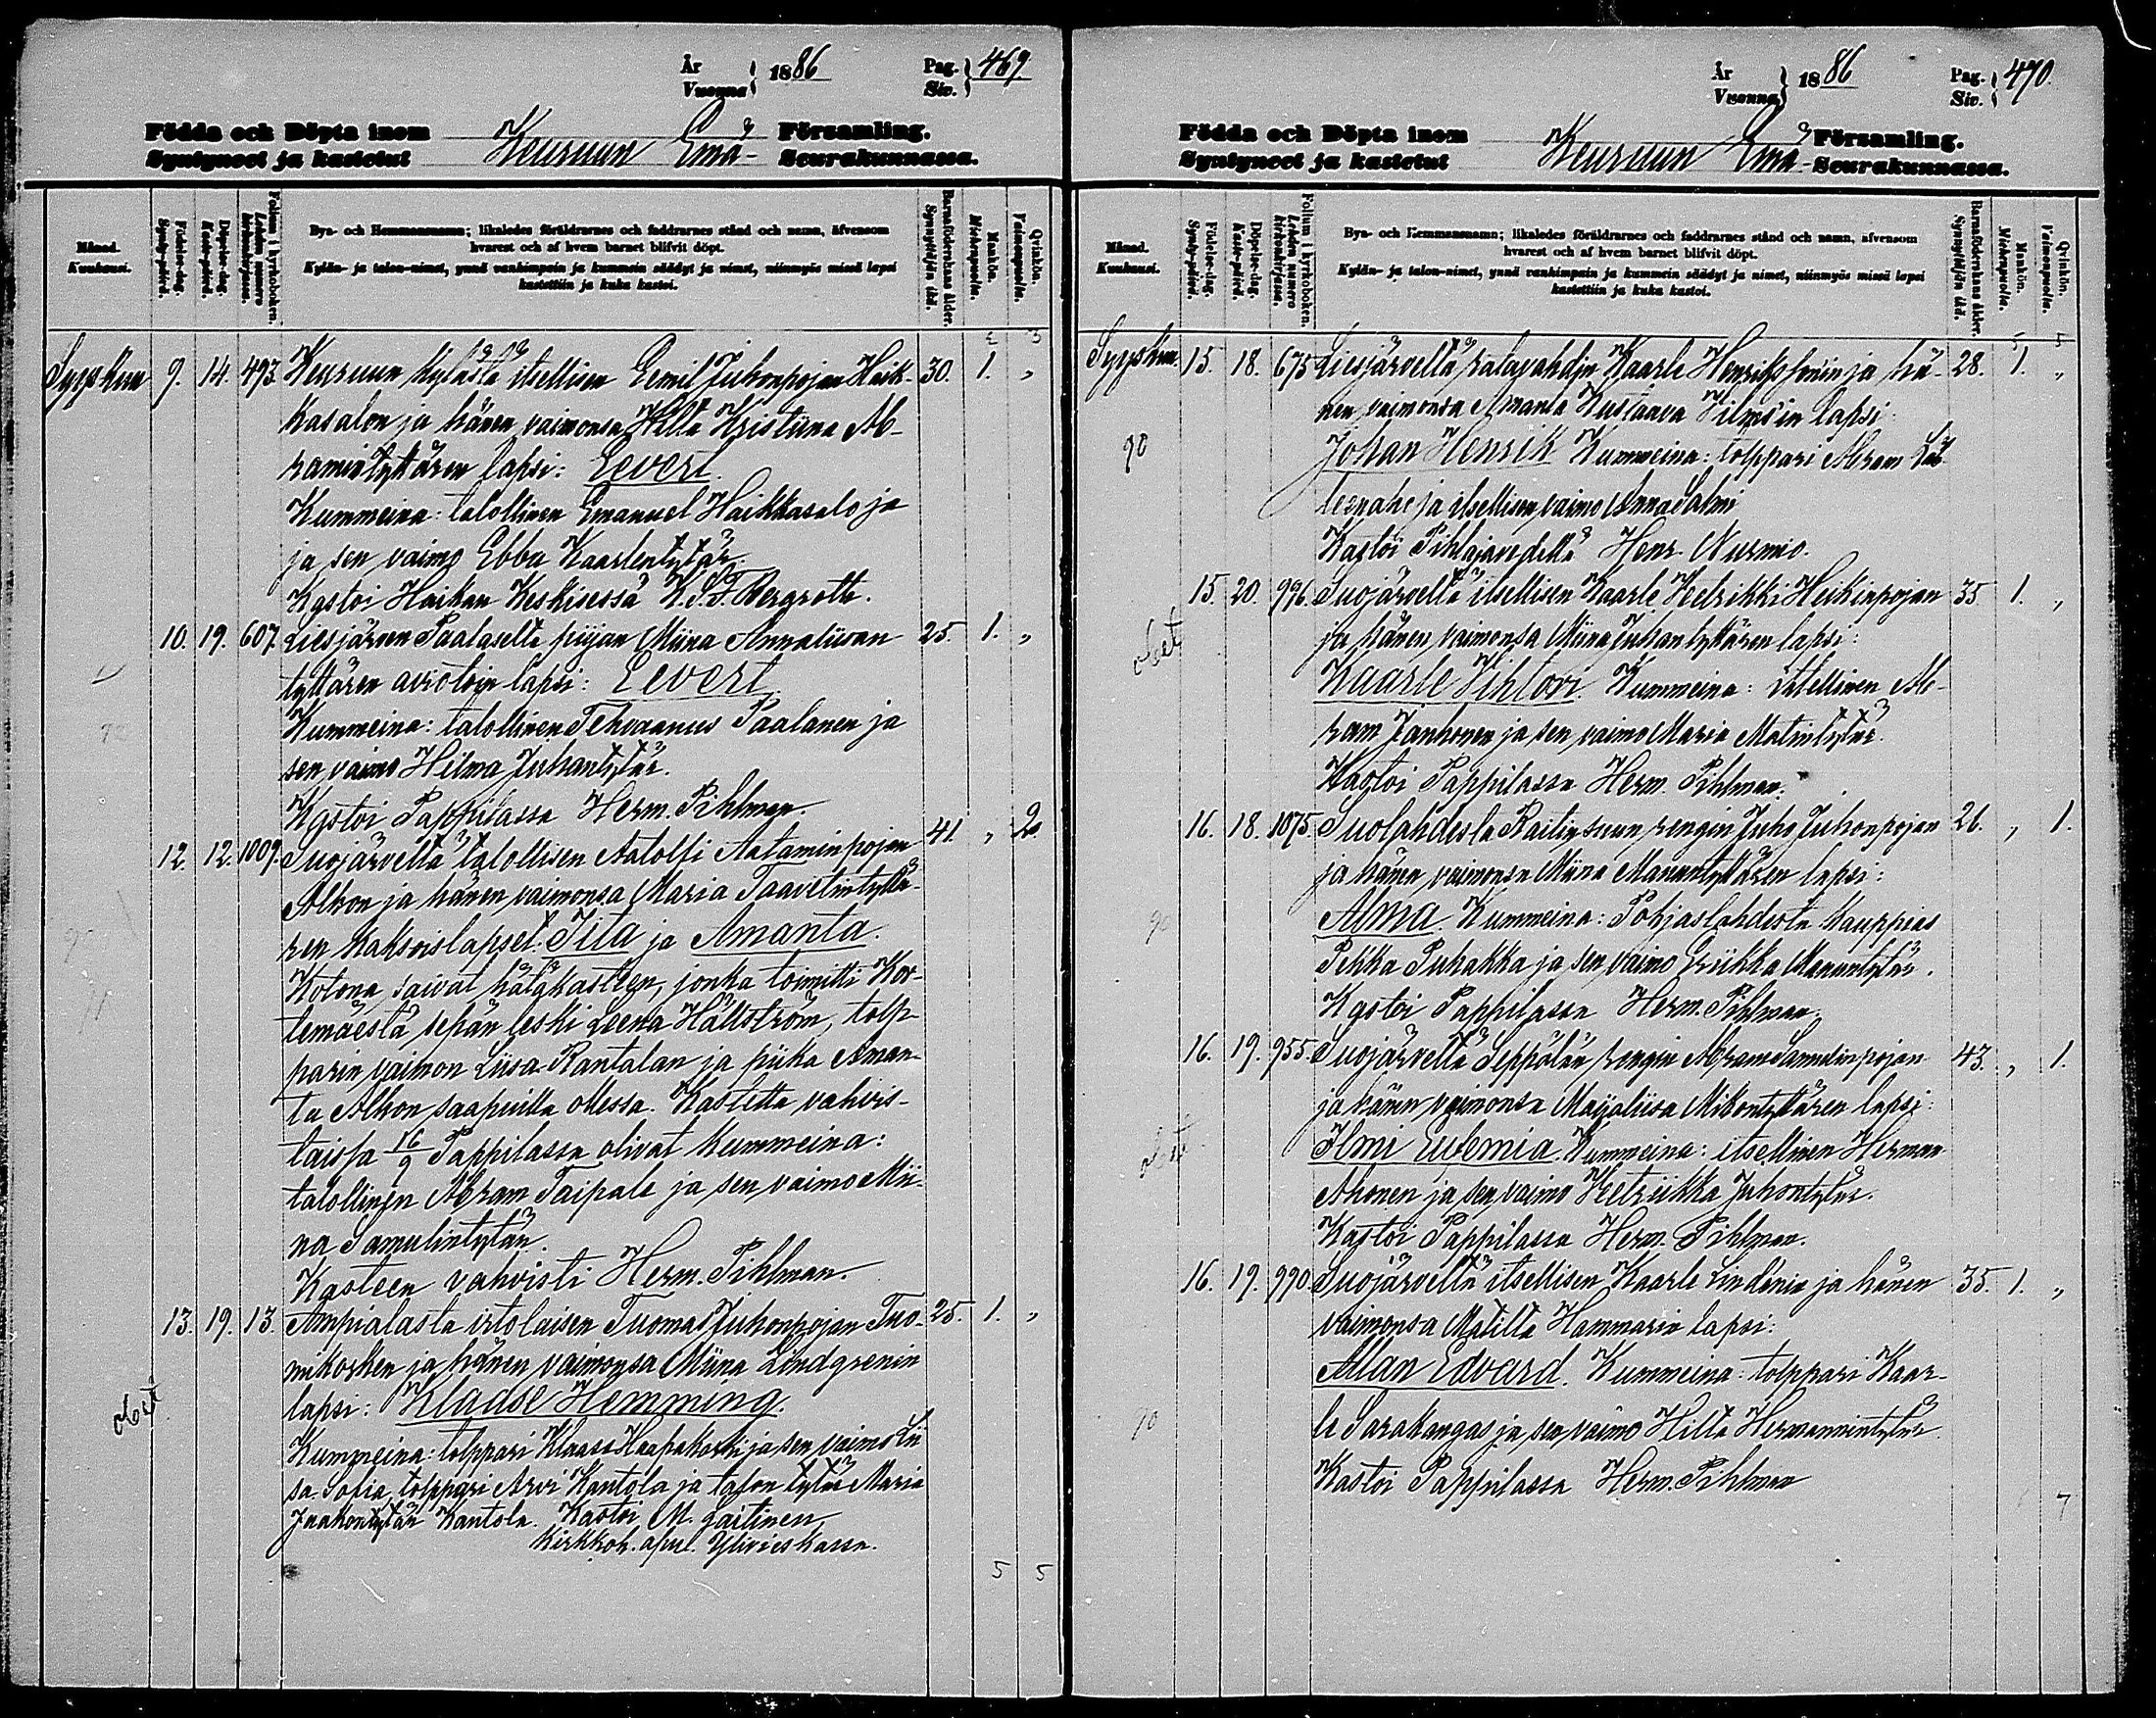 År
Vuonna } 1886 Pag.
Siv. } 469
Födda och Döpta inom Keuruun Emä- Församling.
Syntyneet ja kastetut Seurakunnassa.
Månad.
Kuukausi.
Födelse-dag.
Synty-päivä.
Döpelse-dag.
Kaste-päivä.
Folium i kyrkoboken.
Lehden numero kirkonkirjassa.
Bya- och Hemmansnamn; likaledes föräldrarnes och faddrarnes stånd och namn, äfvensom
hvarest och af hvem barnet blifvit döpt.
Kylän- ja talon-nimet, ynnä vanhimpain ja kummein säädyt ja nimet, niinmyös missä lapsi
kastettiin ja kuka kastoi.
Barnaföderskans ålder.
Synnyttäjän ikä.
Mankön.
Miehenpuolia.
Qvinkön.
Vaimonpuolia.
2 3
Syyskuu 9. 14. 493. Keuruun kylästä itsellisen Eemil Juhonpojan Haik- 30. 1. „
kasalon ja hänen vaimonsa Hilta Kristiina Ab-
ramintyttären lapsi: Eevert.
Kummeina: talollinen Emanuel Haikkasalo ja
ja sen vaimo Ebba Kaarlentytär.
Kastoi Haikan Keskisessä K.J.F. Bergroth.
10. 19. 607. Liesjärven Paalaselta piijan Miina Annaliisan 25. 1. „
tyttären aviotoin lapsi: Eevert
Kummeina: talollinen Tehvaanus Paalanen ja
sen vaimo Hilma Juhantytär.
Kastoi Pappilassa Herm. Pihlman.
12. 12. 1009. Suojärveltä talollisen Aatolfi Aataminpojan 41. „ 2.
Ahon ja hänen vaimonsa Maria Taavetintyttä-
ren kaksoislapset. Iita ja Amanta.
Kotona saivat hätäkasteen, jonka toimitti Kor-
temäestä sepän leski Leena Hällström, tolp-
parin vaimon Liisa Rantalan ja piika Aman-
ta Ahon saapuilla ollessa. Kastetta vahvis-
taissa 16/9 Pappilassa olivat kummeina:
talollinen Abram Taipale ja sen vaimo Mii-
na Samulintytär.
Kasteen vahvisti Herm. Pihlman.
13. 19. 13. Ampialasta irtolaisen Tuomas Juhonpojan Tuo- 25. 1. „
mikosken ja hänen vaimonsa Miina Lindgrenin
obiit lapsi: Klaase Hemming.
Kummeina: tolppari Klaase Haapakoski ja sen vaimo Lii
sa Sofia, tolppari Arvi Kantola ja talon tytär Maria
Jaakontytär Kantola. Kastoi M.
Kirkkoh. apul. Ylivieskassa.
5 5
År
Vuonna } 1886 Pag.
Siv. } 470.
Födda och Döpta inom Keuruun Emä- Församling.
Syntyneet ja kastetut Seurakunnassa.
Månad.
Kuukausi.
Födelse-dag.
Synty-päivä.
Döpelse-dag.
Kaste-päivä.
Folium i kyrkoboken.
Lehden numero kirkonkirjassa.
Bya- och Hemmansnamn; likaledes föräldrarnes och faddrarnes stånd och namn, äfvensom
hvarest och af hvem barnet blifvit döpt.
Kylän- ja talon-nimet, ynnä vanhimpain ja kummein säädyt ja nimet, niinmyös missä lapsi
kastettiin ja kuka kastoi.
Barnaföderskans ålder.
Synnyttäjän ikä.
Mankön.
Miehenpuolia.
Qvinkön.
Vaimonpuolia.
5 5
Syyskuu. 15. 18. 675 Liesjärveltä ratavahdin Kaarle Henrikssonin ja hä- 28. 1. „
nen vaimonsa Amanta Kustaava lapsi:
90 Johan Henrik Kummeina: tolppari Abram
ja itsellisen vaimo Anna Salmi
Kastoi Pihlajavedellä Henr. Nurmio.
15. 20. 996. Suojärveltä itsellisen Kaarle Vetrikki Heikinpojan 35. 1. „
obiit ja hänen vaimonsa Miina Juhantyttären lapsi:
Kaarle Vihtori. Kummeina: itsellinen Ab-
ram Janhonen ja sen vaimo Maria Matintytär.
Kastoi Pappilassa Herm. Pihlman.
16. 18. 1075. Suolahdesta rengin Juho Juhonpojan 26. „ 1.
ja hänen vaimonsa Miina Manuntyttären lapsi:
90 Alma. Kummeina: Pohjaslahdesta kauppias
Pekka Puhakka ja sen vaimo Eriikka Manuntytär.
Kastoi Pappilassa Herm. Pihlman.
16. 19. 955. Suojärveltä Seppälän rengin Abram Samulinpojan 43. „ 1.
ja hänen vaimonsa Maijaliisa Mikontyttären lapsi:
obiit Ilmi Eufemia. Kummeina: itsellinen Herman
Ahonen ja sen vaimo Vetriikka Juhontytär.
Kastoi Pappilassa Herm. Pihlman.
16. 19. 990. Suojärveltä itsellisen Kaarle Lindénin ja hänen 35. 1. „
vaimonsa Matilta Hammarin lapsi:
Allan Edvard. Kummeina: tolppari Kaar-
90 le Sarakangas ja sen vaimo Hilta Hermannintytär
Kastoi Pappilassa Herm. Pihlman
7